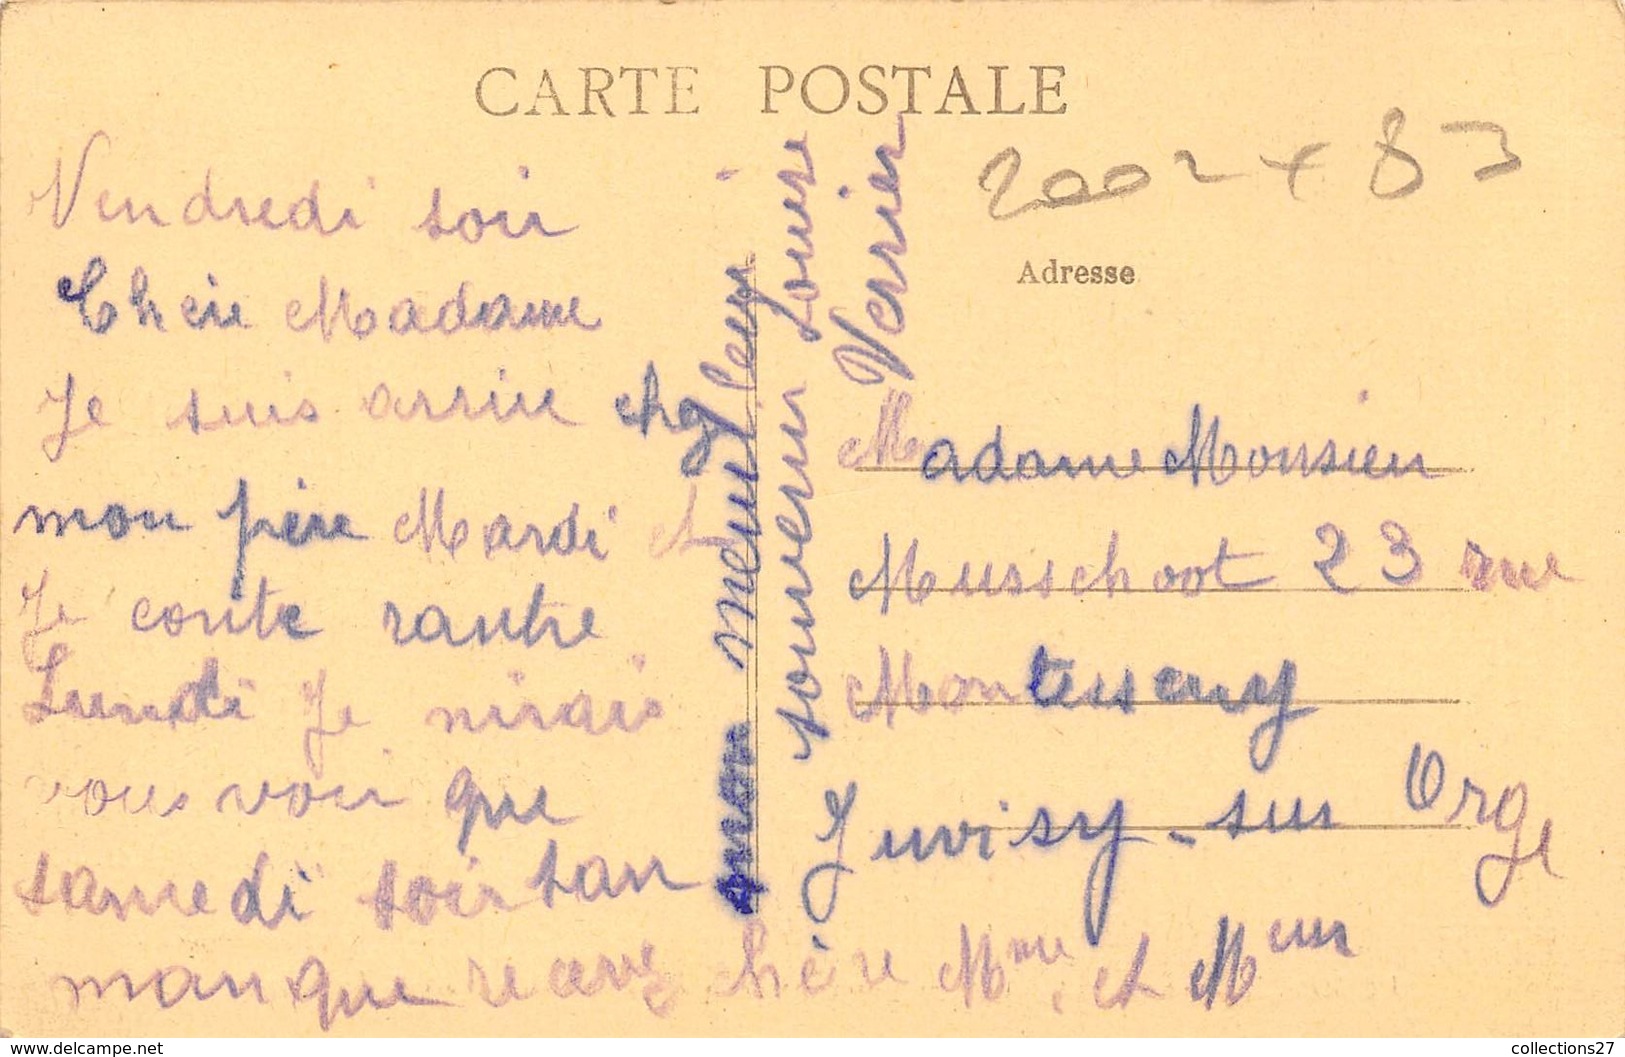 CARTE POSTALE
2002 + 83
Vendredi soir
Chère Madame
Je suis arrive chez
mon père Mardi et
Je conte rantre
Lundi Je nirais
vous voir que
samedi soir san
manque recevez chère Mme et Meur
mon meulleur
souvenir Louise
Verrier
Adresse
Madame Monsieu
Musschoot 23 rue
Montessuy
Juvisy-sur Orge
collections27
www.delcampe.net